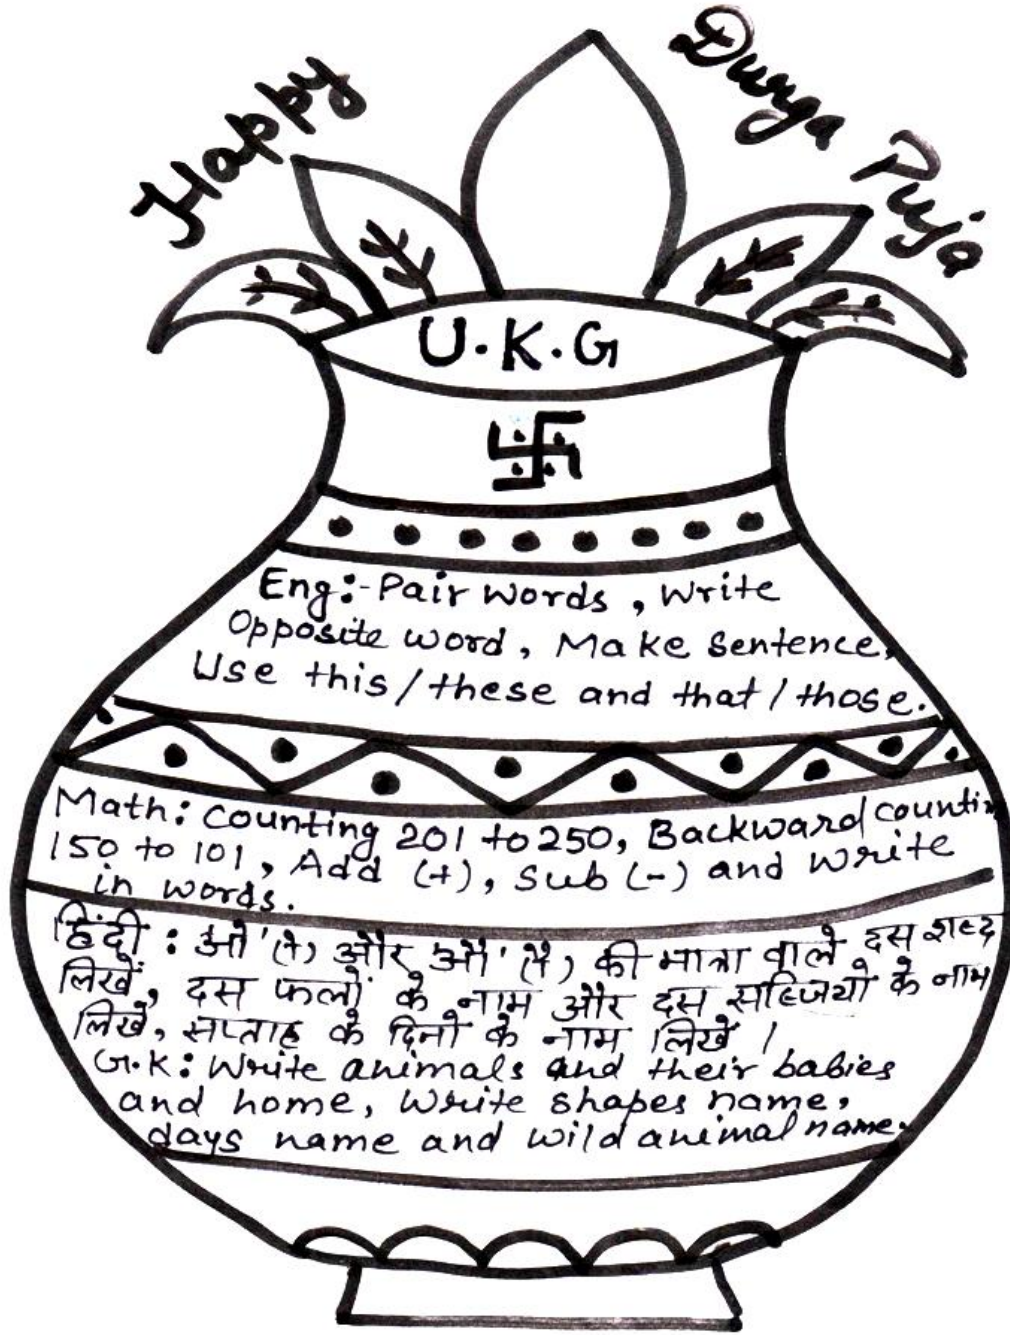 Happy Durga Puja
U.K.G
Eng:- Pair words, Write
Opposite word, Make sentence,
Use this/these and that/those.
Math: Counting 201 to 250, Backward countin
150 to 101, Add (+), Sub (-) and write
in words.
हिंदी : ओ '(ो) और औ' (ौ) की मात्रा वाले दस शब्द
लिखें, दस फलों के नाम और दस सब्जियों के नाम
लिखें, सप्ताह के दिनों के नाम लिखें /
G.K: Write animals and their babies
and home, Write shapes name,
days name and wild animal name.